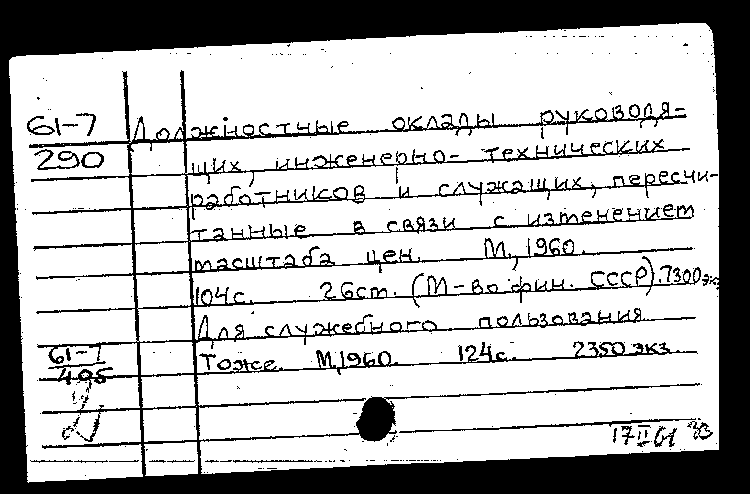 61-7 Должностные оклады руководя-
290 щих, инженерно-технических
работников и служащих, пересчи-
танные в связи с изменением
масштаба цен. М., 1960.
104с. 26см. (М-во фин. СССР). 7300 экз
Для служебного пользования
61-7 То же. М, 1960. 124с. 2350 экз.
495
17 II 61